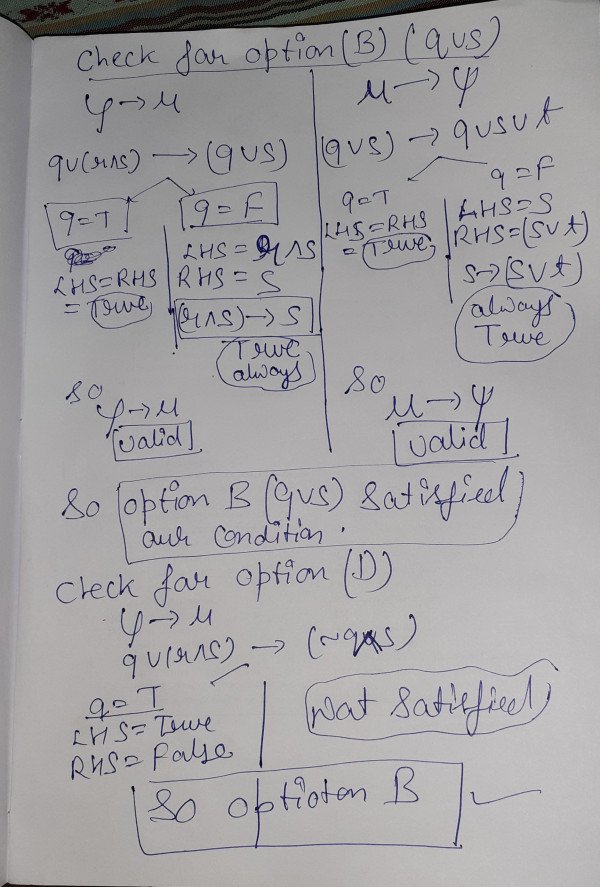 Check for option (B) (q∨s)
φ → μ
q∨(r∧s) → (q∨s)
q=T
LHS=RHS
= True
q=F
LHS = r∧s
RHS = s
(r∧s) → s
True
always
so
φ → μ
valid
μ → ψ
(q∨s) → q∨s∨t
q=T
LHS=RHS
= True
q=F
LHS=s
RHS=(s∨t)
s→(s∨t)
always
True
so
μ → ψ
valid
So option B (q∨s) Satisfied
our condition.
Check for option (D)
φ → μ
q∨(r∧s) → (~q∧s)
q=T
LHS=True
RHS=False
Not Satisfied
So optioton B